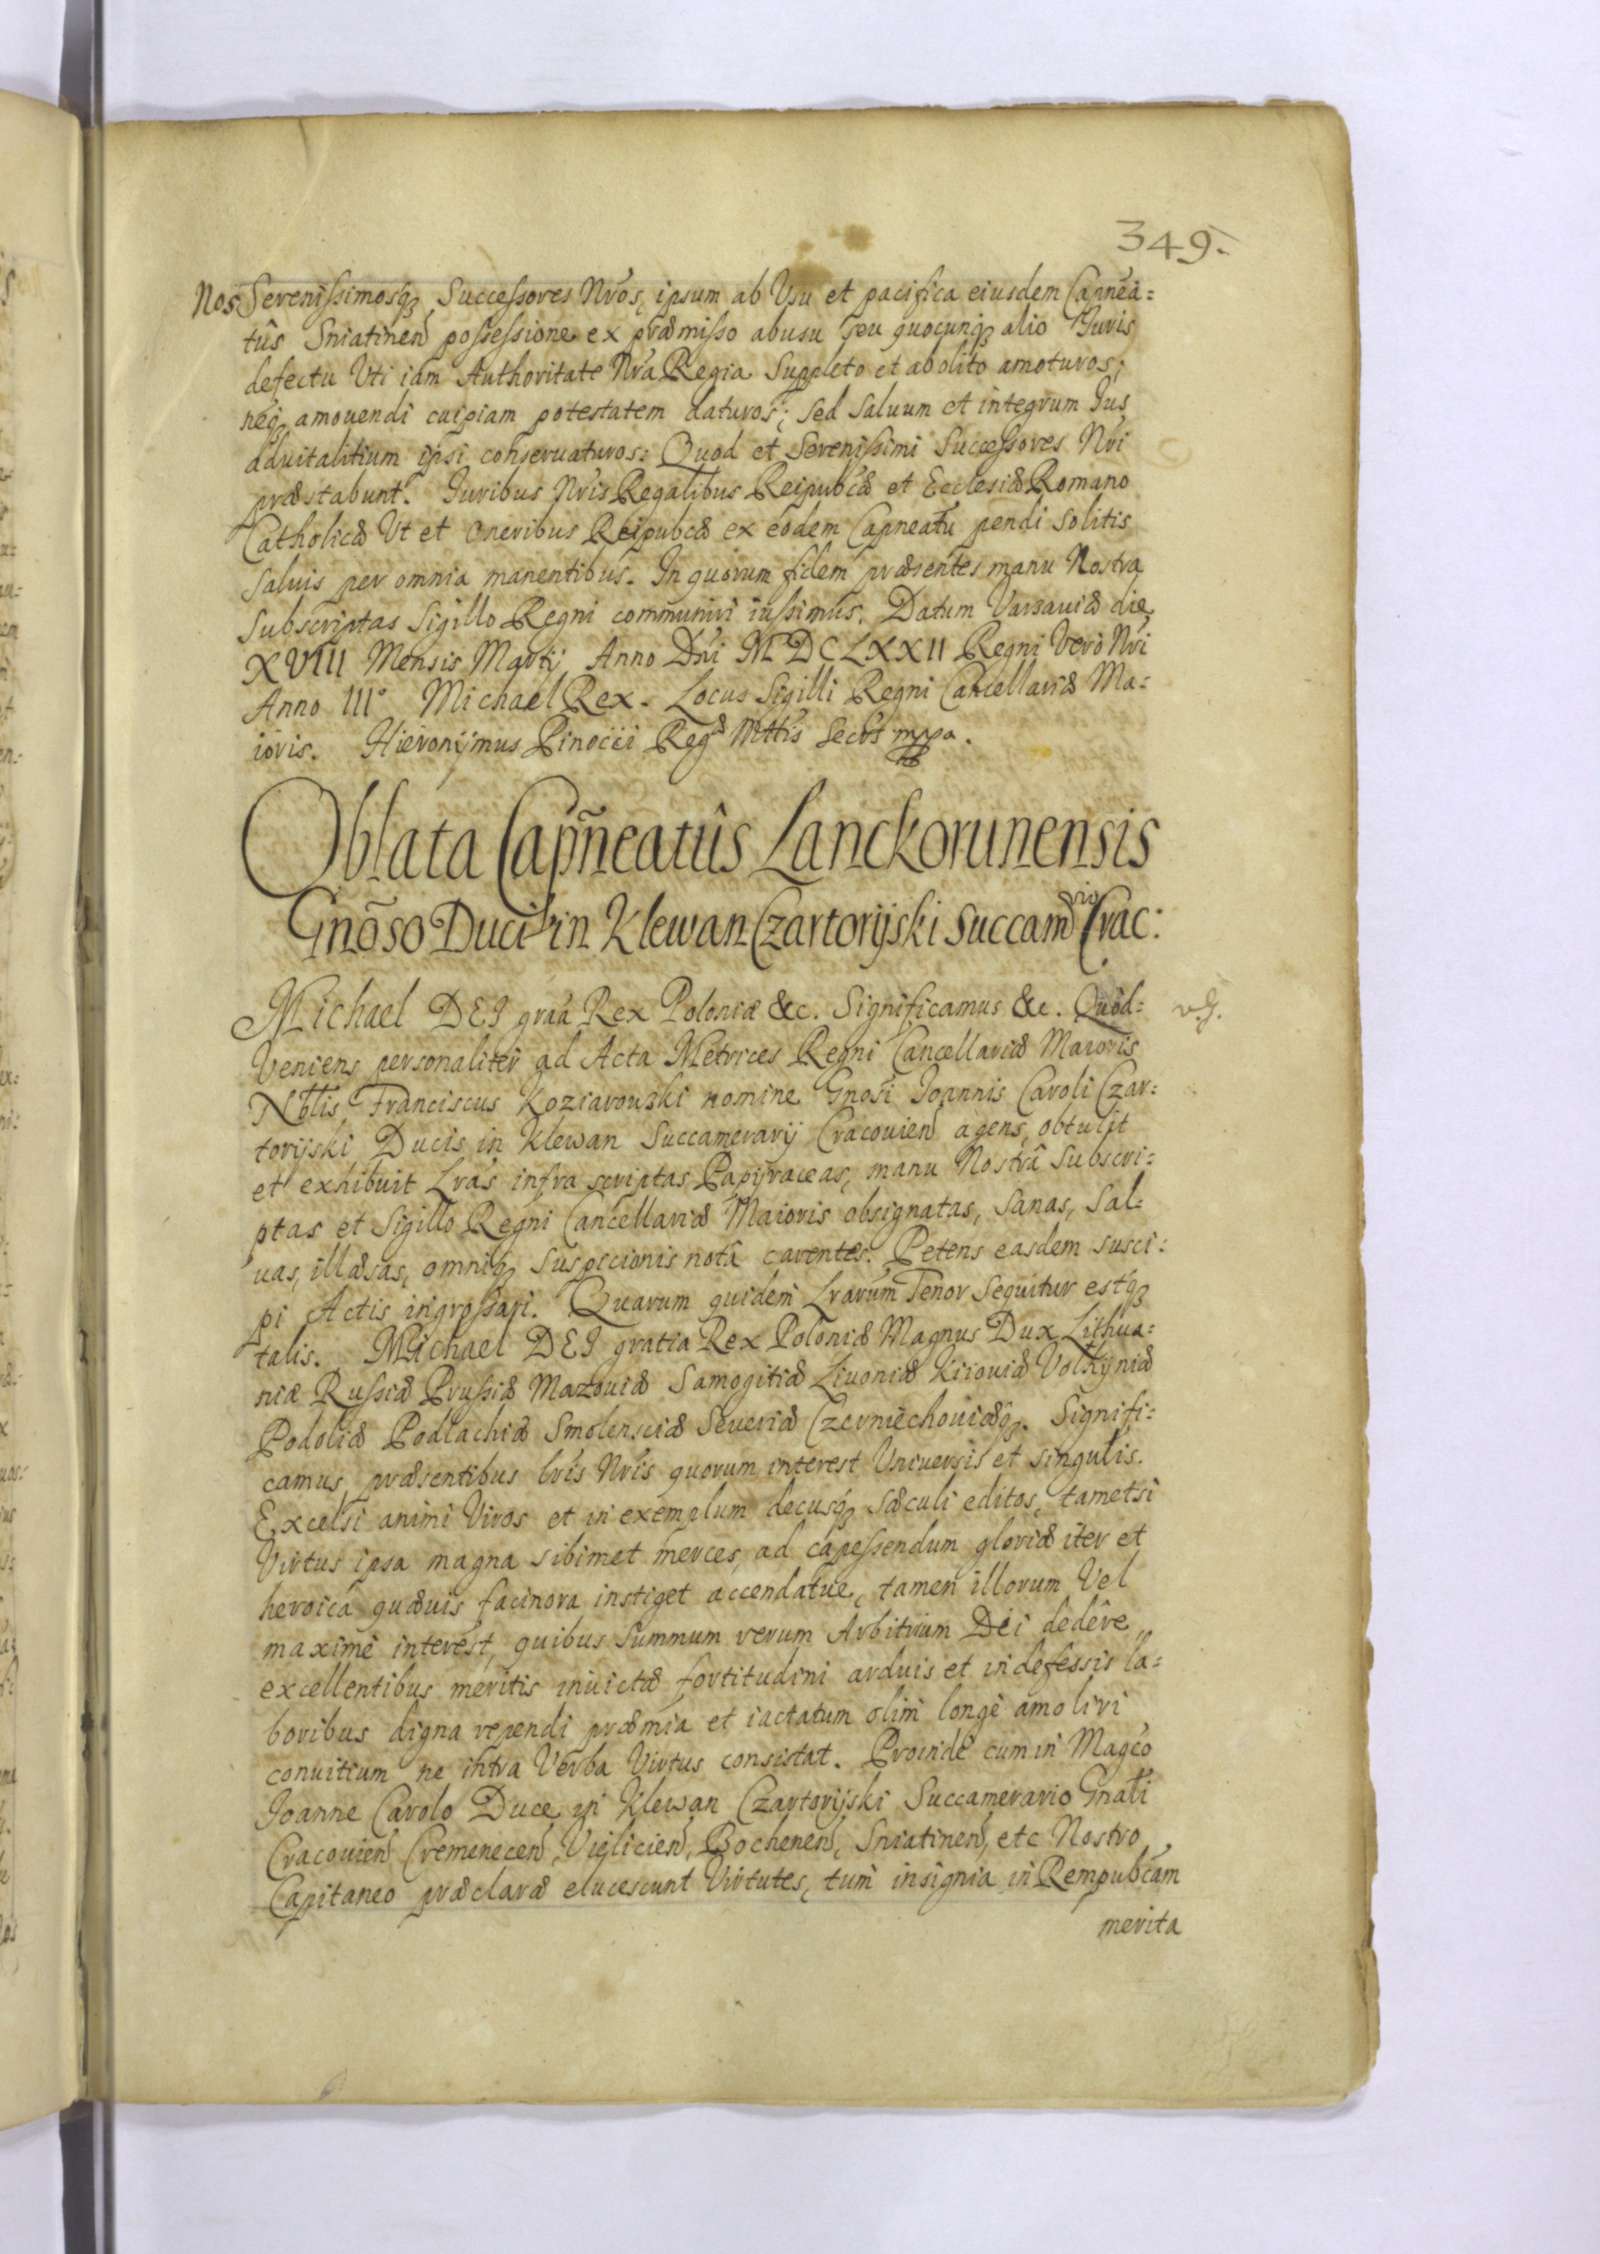 349.
Nos Serenissimosq3 Successores Nros, ipsum ab Usu et pacifica eiusdem Capnea=
tûs Sniatinen possessione ex præmisso abusu seu quocunq3 alio Iuris
defectu Uti iam Authoritate Nra Regia Suppleto et abolito amoturos;
neq3 amouendi cuipiam potestatem daturos; Sed Saluum et integrum Ius
aduitalitium ipsi conseruaturos: Quod et Serenissimi Successores Nri
præstabunt. Iuribus Nris Regalibus Reipubcæ et Ecclesiæ Romano
Catholicæ Ut et Oneribus Reipubcæ ex eodem Capneatu pendi Solitis
Saluis per omnia manentibus. In quorum fidem præsentes manu Nostra
Subscriptas Sigillo Regni communiri iussimus. Datum Varsauiæ die
XVIII Mensis Martij Anno Dni MDCLXXII Regni Vero Nri
Anno III° Michael Rex. Locus Sigilli Regni Cancellariæ Ma=
ioris. Hieronymus Pinocci Regæ Mttis Secrs mppa.
Oblata Capneatûs Lanckorunensis
Gnoso Duci in Klewan Czartoryski Succamrio Crac:
Michael DEI graa Rex Poloniæ &c. Significamus &c. Quod= v.g.
Veniens personaliter ad Acta Metrices Regni Cancellariæ Maioris
Nbtlis Franciscus Koziarowski nomine Gnosi Ioannis Caroli Czar=
toryski Ducis in Klewan Succamerarij Cracouien agens, obtulit
et exhibuit Lras infra scriptas Papyraceas, manu Nostrâ Subscri=
ptas et Sigillo Regni Cancellariæ Maioris obsignatas, Sanas, Sal=
uas, illæsas, omniq3 Suspicionis notâ carentes. Petens easdem susci=
pi Actis ingrossari. Quarum quidem Lrarum Tenor Sequitur estq3
talis. Michael DEI gratia Rex Poloniæ Magnus Dux Lithua=
niæ Russiæ Prussiæ Mazouiæ Samogitiæ Liuoniæ Kiiouiæ Volhyniæ
Podoliæ Podlachiæ Smolensciæ Seueriæ Czerniechouiæq3. Signifi=
camus præsentibus lris Nris quorum interest Uniuersis et singulis.
Excelsi animi Viros et in exemplum decusq3 Sæculi editos, tametsi
Virtus ipsa magna sibimet merces, ad capessendum gloriæ iter et
heroica quæuis facinora instiget accendatue, tamen illorum Vel
maximè interest, quibus Summum rerum Arbitrium Dei dedêre,
excellentibus meritis inuictæ fortitudini arduis et indefessis la=
boribus digna rependi præmia et iactatum olim longè amoliri
conuitium ne intra Verba Virtus consistat. Proinde cum in Magco
Ioanne Carolo Duce in Klewan Czartoryski Succamerario Gnali
Cracouien Cremenecen, Vieliciën, Bochenen, Sniatinen, etc Nostro
Capitaneo præclaræ elucescunt Virtutes, tum insignia in Rempubcam
merita